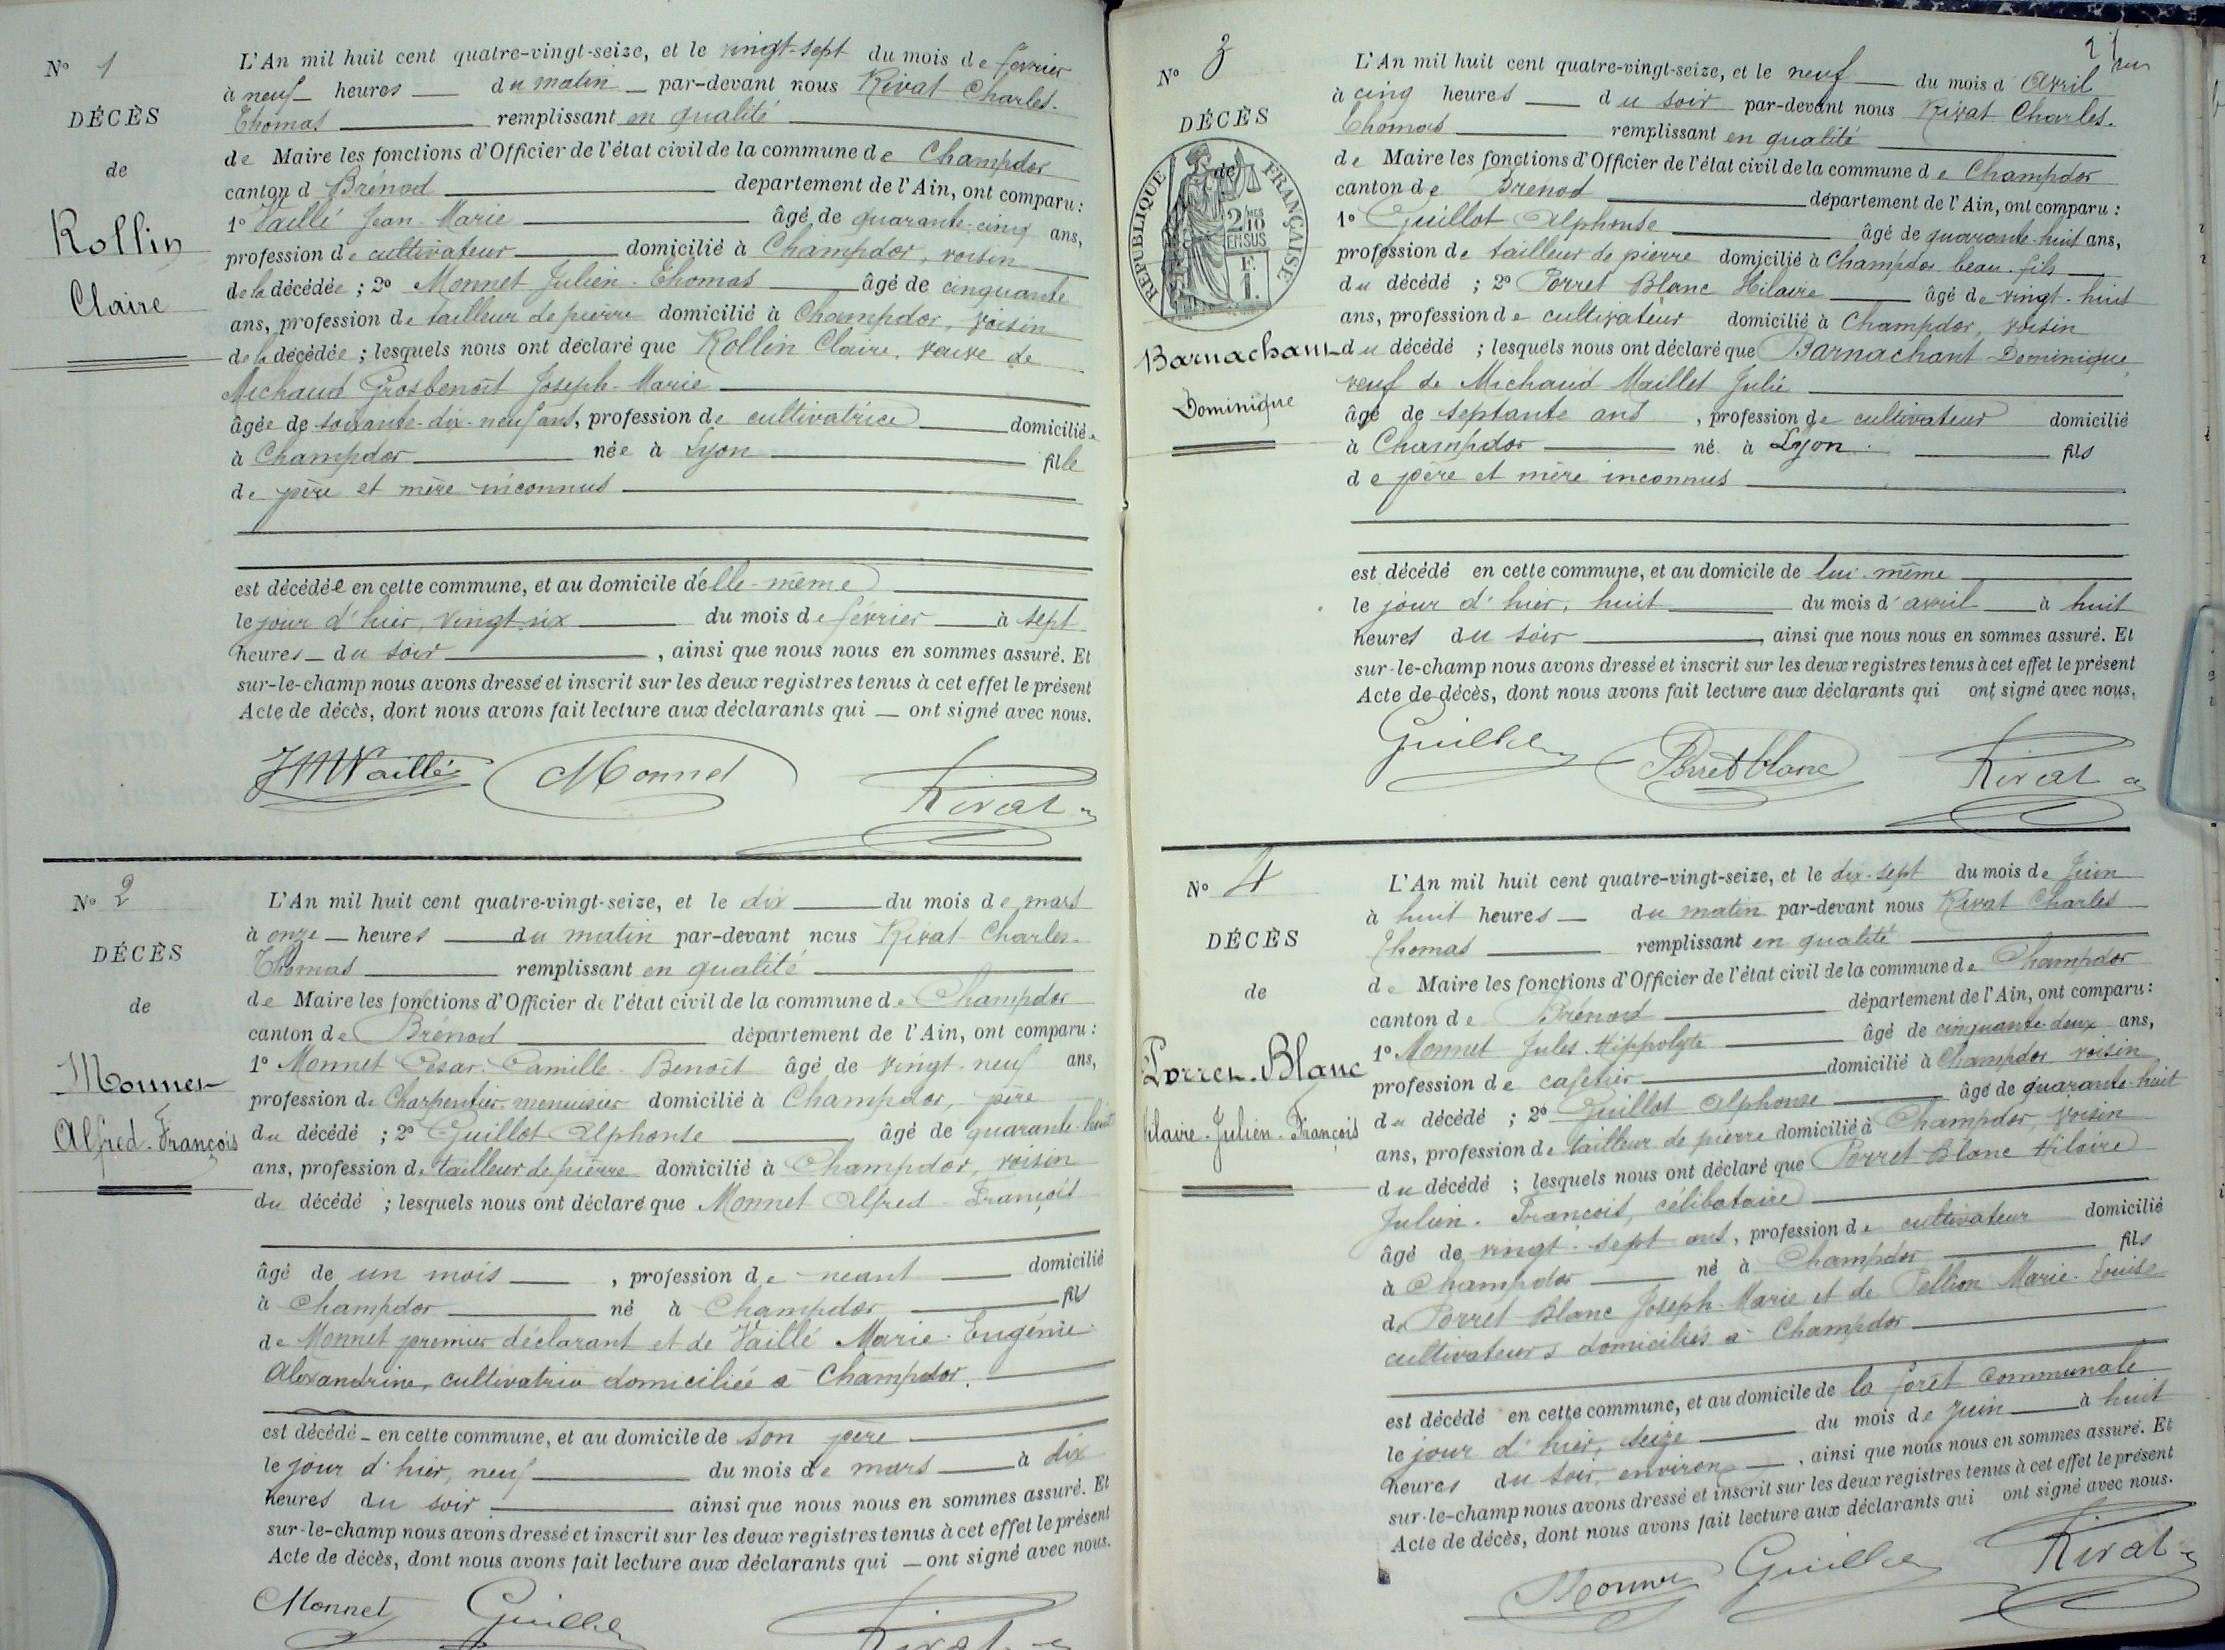 N° 1
DÉCÈS
de
Rollin
Claire
L'An mil huit cent quatre-vingt-seize, et le vingt-sept du mois de février
à neuf heures du matin par-devant nous Rivat Charles-
Thomas remplissant en qualité
de Maire les fonctions d'Officier de l'état civil de la commune de Champdor
canton d Brénod departement de l'Ain, ont comparu:
1° Vaillé Jean-Marie âgé de quarante-cinq ans,
profession de cultivateur domicilié à Champdor, voisin
de la décédée ; 2° Monnet Julien-Thomas âgé de cinquante
ans, profession de tailleur de pierre domicilié à Champdor, voisin
de la décédée ; lesquels nous ont déclaré que Rollin Claire, veuve de
Michaud Grosbenoît Joseph-Marie
âgée de soixante-dix-neuf ans, profession de cultivatrice domiciliée
à Champdor née à Lyon fille
de père et mère inconnus
est décédée en cette commune, et au domicile d'elle-même
le jour d'hier, vingt-six du mois de février à sept
heures du soir, ainsi que nous nous en sommes assuré. Et
sur-le-champ nous avons dressé et inscrit sur les deux registres tenus à cet effet le présent
Acte de décès, dont nous avons fait lecture aux déclarants qui ont signé avec nous.
JMVaillé Monnet Rivat
N° 2
DÉCÈS
de
Monnet
Alfred-François
L'An mil huit cent quatre-vingt-seize, et le dix du mois de mars
à onze heures du matin par-devant nous Rivat Charles-
Thomas remplissant en qualité
de Maire les fonctions d'Officier de l'état civil de la commune de Champdor
canton de Brénod département de l'Ain, ont comparu:
1° Monnet César-Camille-Benoît âgé de vingt-neuf ans,
profession de Charpentier-menuisier domicilié à Champdor, père
du décédé ; 2° Guillot Alphonse âgé de quarante-huit
ans, profession de tailleur de pierre domicilié à Champdor, voisin
du décédé ; lesquels nous ont déclaré que Monnet Alfred-François
âgé de un mois, profession de néant domicilié
à Champdor né à Champdor fils
de Monnet premier déclarant et de Vaillé Marie-Eugénie-
Alexandrine, cultivatrice domiciliée à Champdor.
est décédé en cette commune, et au domicile de son père
le jour d'hier, neuf du mois de mars à dix
heures du soir ainsi que nous nous en sommes assuré. Et
sur-le-champ nous avons dressé et inscrit sur les deux registres tenus à cet effet le présent
Acte de décès, dont nous avons fait lecture aux déclarants qui ont signé avec nous.
Monnet Guillot Rivat
21
N° 3
DÉCÈS
de
RÉPUBLIQUE FRANÇAISE
2/10 EN SUS
Barnachant
Dominique
L'An mil huit cent quatre-vingt-seize, et le neuf du mois d'Avril
à cinq heures du soir par-devant nous Rivat Charles-
Thomas remplissant en qualité
de Maire les fonctions d'Officier de l'état civil de la commune de Champdor
canton de Brenod département de l'Ain, ont comparu:
1° Guillot Alphonse âgé de quarante-huit ans,
profession de tailleur de pierre domicilié à Champdor beau-fils
du décédé ; 2° Porret Blanc Hilaire âgé de vingt-huit
ans, profession de cultivateur domicilié à Champdor, voisin
du décédé ; lesquels nous ont déclaré que Barnachant Dominique,
veuf de Michaud Maillet Julie
âgé de septante ans, profession de cultivateur domicilié
à Champdor né à Lyon. fils
de père et mère inconnus
est décédé en cette commune, et au domicile de lui-même
le jour d'hier, huit du mois d'avril à huit
heures du soir, ainsi que nous nous en sommes assuré. Et
sur-le-champ nous avons dressé et inscrit sur les deux registres tenus à cet effet le présent
Acte de décès, dont nous avons fait lecture aux déclarants qui ont signé avec nous.
Guillot Porret blanc Rivat
N° 4
DÉCÈS
de
Porret-Blanc
hilaire-Julien-François
L'An mil huit cent quatre-vingt-seize, et le dix-sept du mois de Juin
à huit heures du matin par-devant nous Rivat Charles
Thomas remplissant en qualité
de Maire les fonctions d'Officier de l'état civil de la commune de Champdor
canton de Brénod département de l'Ain, ont comparu:
1° Monnet Jules-Hippolyte âgé de cinquante-deux ans,
profession de cafetier domicilié à Champdor voisin
du décédé ; 2° Guillot Alphonse âgé de quarante-huit
ans, profession de tailleur de pierre domicilié à Champdor, voisin
du décédé ; lesquels nous ont déclaré que Porret Blanc Hilaire
Julien-François, célibataire
âgé de vingt-sept ans, profession de cultivateur domicilié
à Champdor né à Champdor fils
de Porret-Blanc Joseph-Marie et de Pellion Marie-Louise
cultivateurs domiciliés à Champdor
est décédé en cette commune, et au domicile de la forêt communale
le jour d'hier, seize du mois de juin à huit
heures du soir, environ, ainsi que nous nous en sommes assuré. Et
sur-le-champ nous avons dressé et inscrit sur les deux registres tenus à cet effet le présent
Acte de décès, dont nous avons fait lecture aux déclarants qui ont signé avec nous.
Monnet Guillot Rivat